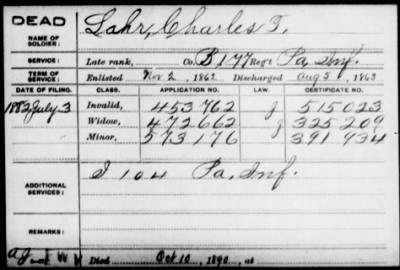 DEAD
NAME OF SOLDIER: Lahr, Charles T.
SERVICE: Late rank, Co. B 177 Reg't Pa. Inf.
TERM OF SERVICE: Enlisted Nov 2, 1862 Discharged Aug 5, 1863
DATE OF FILING. CLASS. APPLICATION NO. LAW. CERTIFICATE NO.
1882 July 3 Invalid, 453762 J 515023
Widow, 472662 J 325209
Minor, 573176 391934
ADDITIONAL SERVICES: I 104 Pa. Inf.
REMARKS:
Died Oct 10, 1890, at